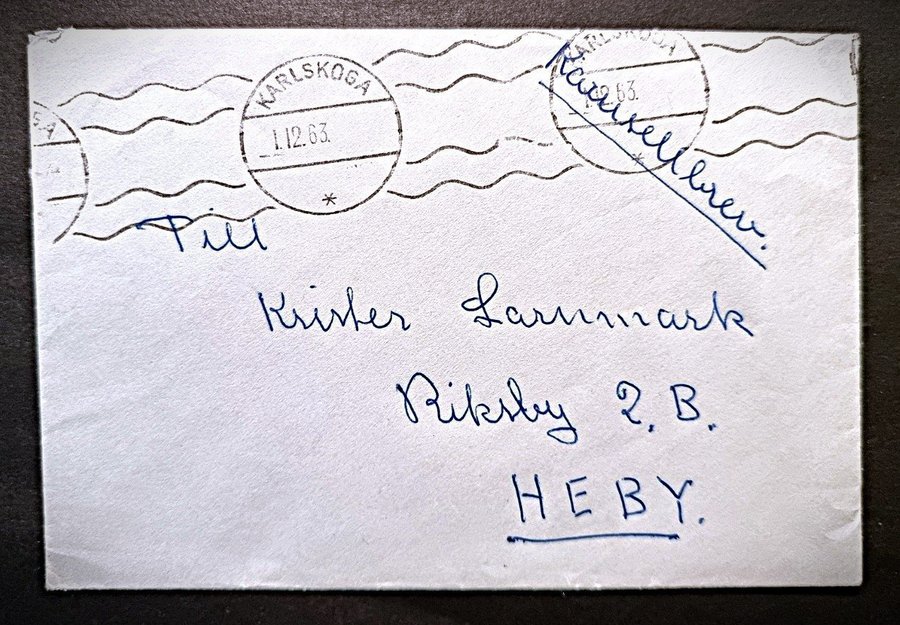 KARLSKOGA
1.12.63.
KARLSKOGA
Kamratbrev.
Till
Krister Larnmark
Riksby 2. B.
HEBY.